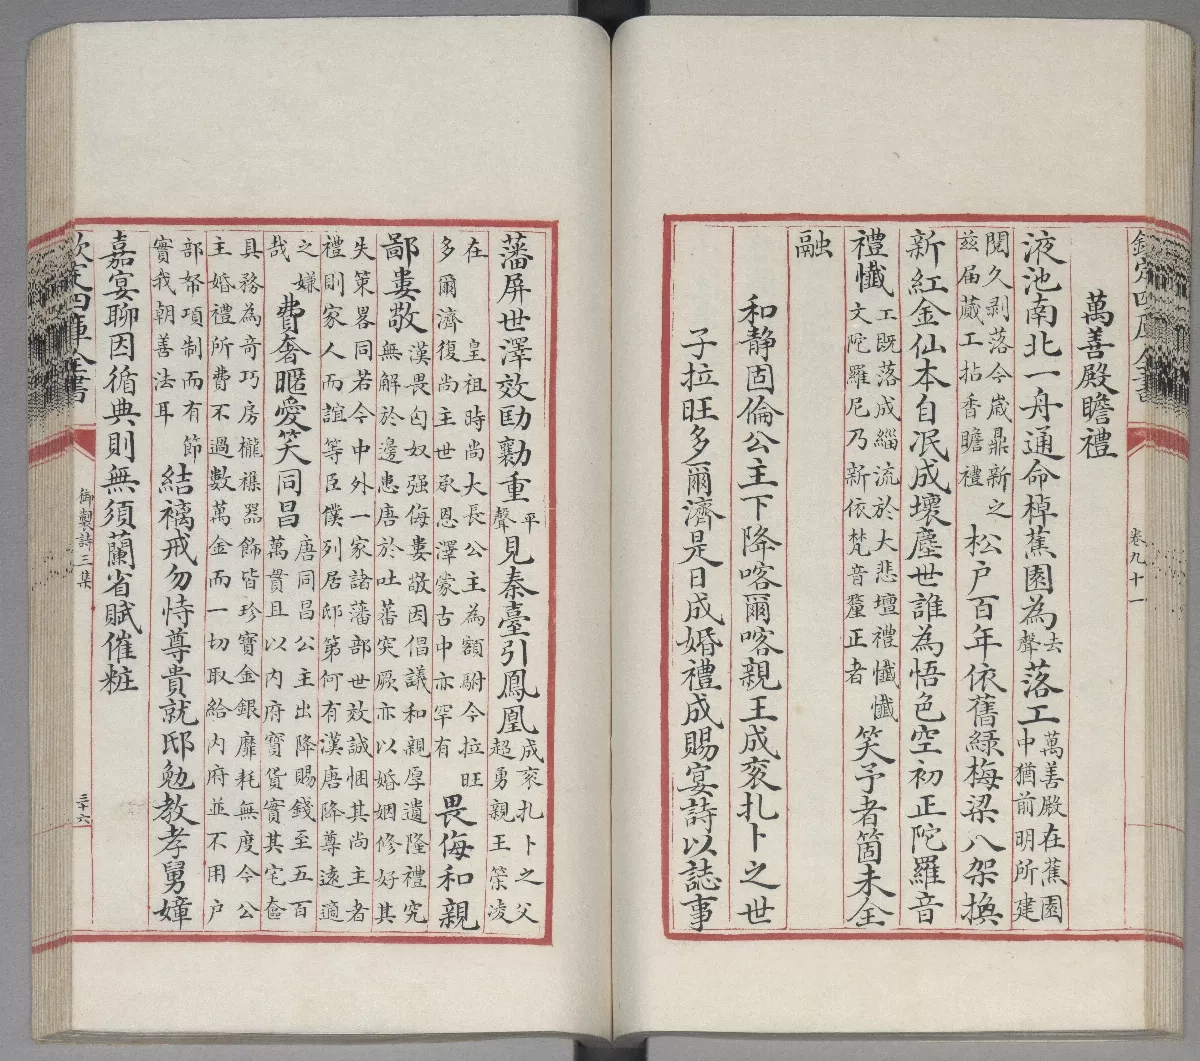 欽定四庫全書
卷九十一
萬善殿瞻禮
液池南北一舟通命棹蕉園為去聲落工萬善殿在蕉園中猶前明所建
閱久剥落今歲鼎新之兹届蕆工拈香瞻禮松户百年依舊緑梅梁八架換
新紅金仙本自冺成壞塵世誰為悟色空初正陀羅音
禮懺工既落成緇流於大悲壇禮懺懺文陀羅尼乃新依梵音釐正者笑予者箇未全
融
和静固倫公主下降喀爾喀親王成衮扎卜之世
子拉旺多爾濟是日成婚禮成賜宴詩以誌事
藩屏世澤效劻勷重平聲見秦臺引鳳凰成衮扎卜之父超勇親王策凌
在皇祖時尚大長公主為額駙今拉旺多爾濟復尚主世承恩澤蒙古中亦罕有畏侮和親
鄙婁敬漢畏匈奴强侮婁敬因倡議和親厚遺隆禮究無解於邊患唐於吐蕃突厥亦以婚姻修好其
失策畧同若今中外一家諸藩部世效誠悃其尚主者禮則家人而誼等臣僕列居邸第何有漢唐降尊遠適
之嫌哉費奢暱愛笑同昌唐同昌公主出降賜錢至五百萬貫且以内府寳貨實其宅奩
具務為奇巧房櫳襍器飾皆珍寳金銀靡耗無度今公主婚禮所費不過數萬金而一切取給内府並不用户
部帑項制而有節實我朝善法耳結褵戒勿恃尊貴就邸勉教孝舅嫜
嘉宴聊因循典則無須蘭省賦催粧
欽定四庫全書
御製詩三集
三十六